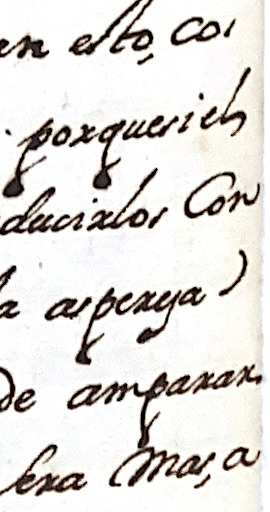 en esto, cos
porque si el
ducirlos Con
la aspereza)
de amparar
era Mas, a